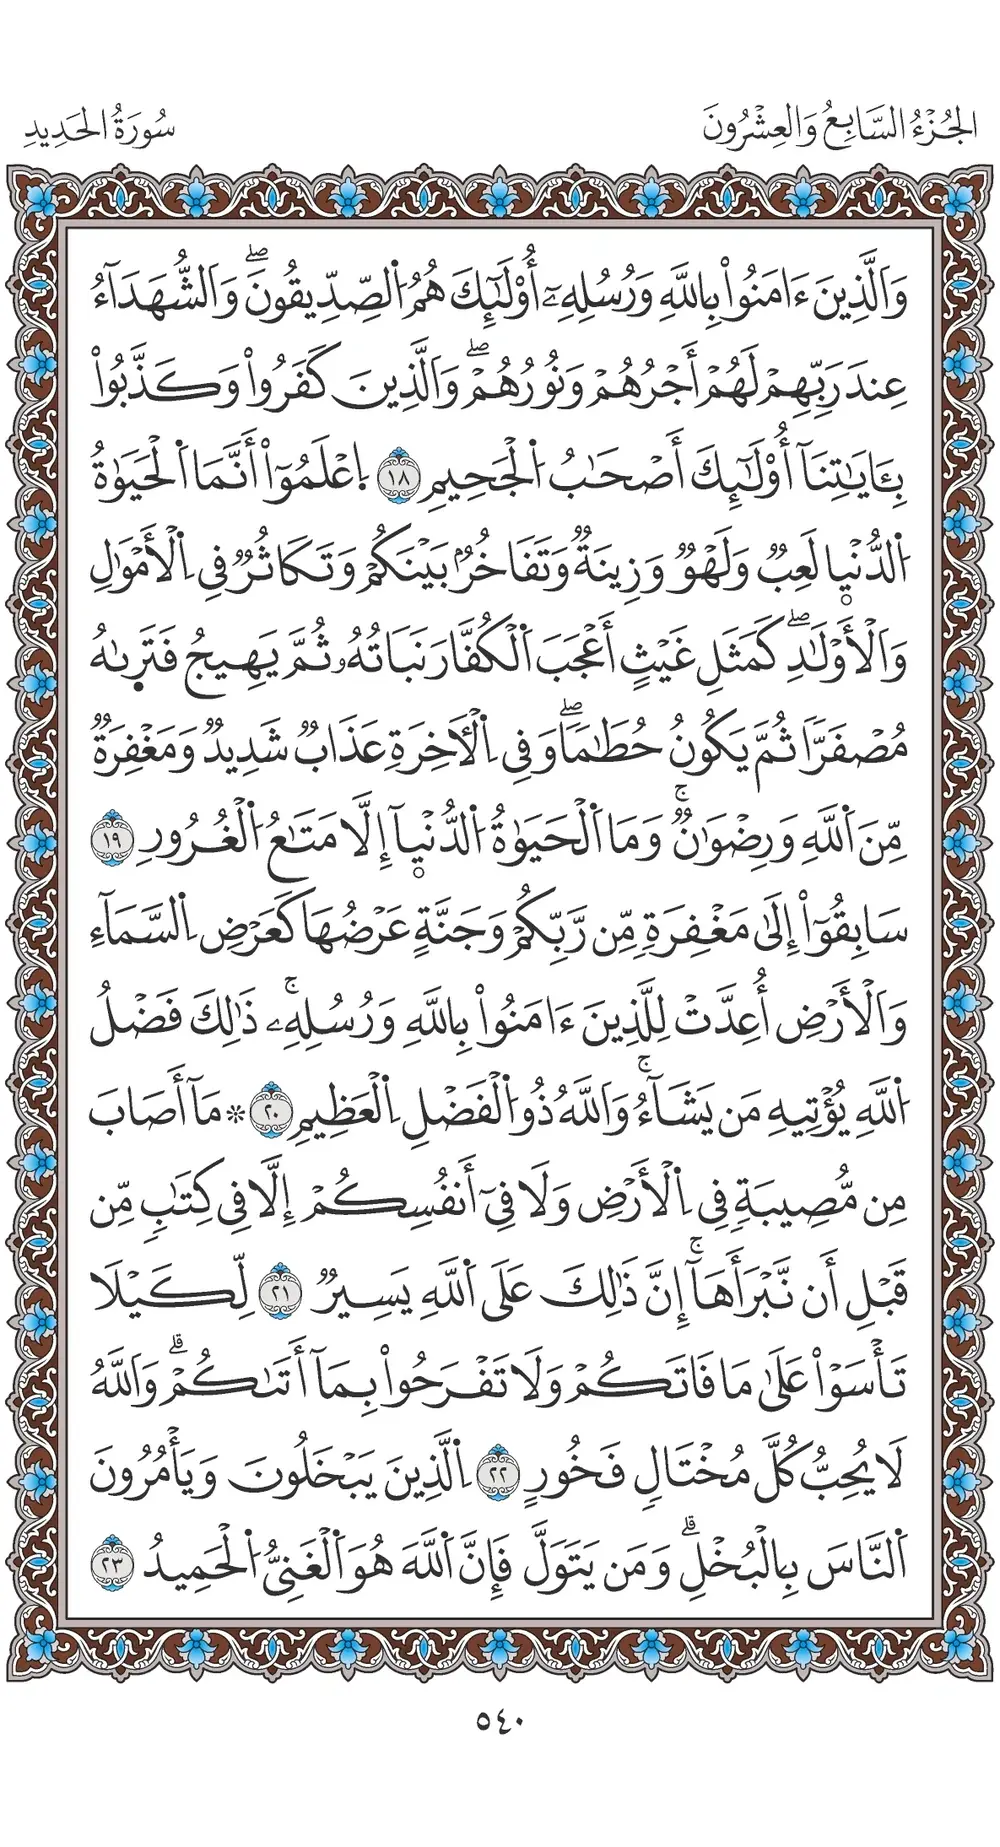 الجُزْءُ السَّابِعُ وَالعِشْرُونَ
سُورَةُ الحَدِيدِ
وَالَّذِينَ ءَامَنُواْ بِاللَّهِ وَرُسُلِهِۦٓ أُوْلَٰٓئِكَ هُمُ اُلصِّدِّيقُونَۖ وَالشُّهَدَآءُ
عِندَ رَبِّهِمْ لَهُمْ أَجْرُهُمْ وَنُورُهُمْۖ وَالَّذِينَ كَفَرُواْ وَكَذَّبُواْ
بِـَٔايَٰتِنَآ أُوْلَٰٓئِكَ أَصْحَٰبُ اُلْجَحِيمِ ١٨ اِعْلَمُوٓاْ أَنَّمَا اَلْحَيَوٰةُ
اُلدُّنْيا لَعِبٌ وَلَهْوٌ وَزِينَةٌ وَتَفَاخُرٌۢ بَيْنَكُمْ وَتَكَاثُرٌ فِي اِلْأَمْوَٰلِ
وَالْأَوْلَٰدِۖ كَمَثَلِ غَيْثٍ أَعْجَبَ اَلْكُفَّارَ نَبَاتُهُۥ ثُمَّ يَهِيجُ فَتَرىٰهُ
مُصْفَرّاً ثُمَّ يَكُونُ حُطَٰماًۖ وَفِي اِلْأٓخِرَةِ عَذَابٌ شَدِيدٌ وَمَغْفِرَةٌ
مِّنَ اَللَّهِ وَرِضْوَٰنٌۚ وَمَا اَلْحَيَوٰةُ اُلدُّنْيآ إِلَّا مَتَٰعُ اُلْغُرُورِ ١٩
سَابِقُوٓاْ إِلَىٰ مَغْفِرَةٍ مِّن رَّبِّكُمْ وَجَنَّةٍ عَرْضُهَا كَعَرْضِ اِلسَّمَآءِ
وَالْأَرْضِ أُعِدَّتْ لِلَّذِينَ ءَامَنُواْ بِاللَّهِ وَرُسُلِهِۦۚ ذَٰلِكَ فَضْلُ
اُللَّهِ يُؤْتِيهِ مَن يَشَآءُۚ وَاللَّهُ ذُو اُلْفَضْلِ اِلْعَظِيمِ ٢٠ * مَآ أَصَابَ
مِن مُّصِيبَةٍ فِي اِلْأَرْضِ وَلَا فِيٓ أَنفُسِكُمْ إِلَّا فِي كِتَٰبٍ مِّن
قَبْلِ أَن نَّبْرَأَهَآۚ إِنَّ ذَٰلِكَ عَلَى اَللَّهِ يَسِيرٌ ٢١ لِّكَيْلَا
تَأْسَوْاْ عَلَىٰ مَا فَاتَكُمْ وَلَا تَفْرَحُواْ بِمَآ أَتَىٰكُمْۗ وَاللَّهُ
لَا يُحِبُّ كُلَّ مُخْتَالٍ فَخُورٍ ٢٢ اِلَّذِينَ يَبْخَلُونَ وَيَأْمُرُونَ
اَلنَّاسَ بِالْبُخْلِۗ وَمَن يَتَوَلَّ فَإِنَّ اَللَّهَ هُوَ اَلْغَنِيُّ اُلْحَمِيدُ ٢٣
٥٤٠